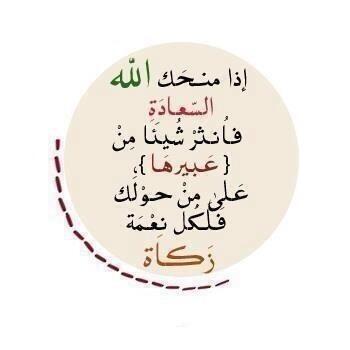 إذا منحَك الله
السّعادَةِ
فأنثرْ شُيئَا مِنْ
{ عَبيرهَا },
عَلى مِنْ حوْلَك
فَلكُل نِعْمَة
زَكاة